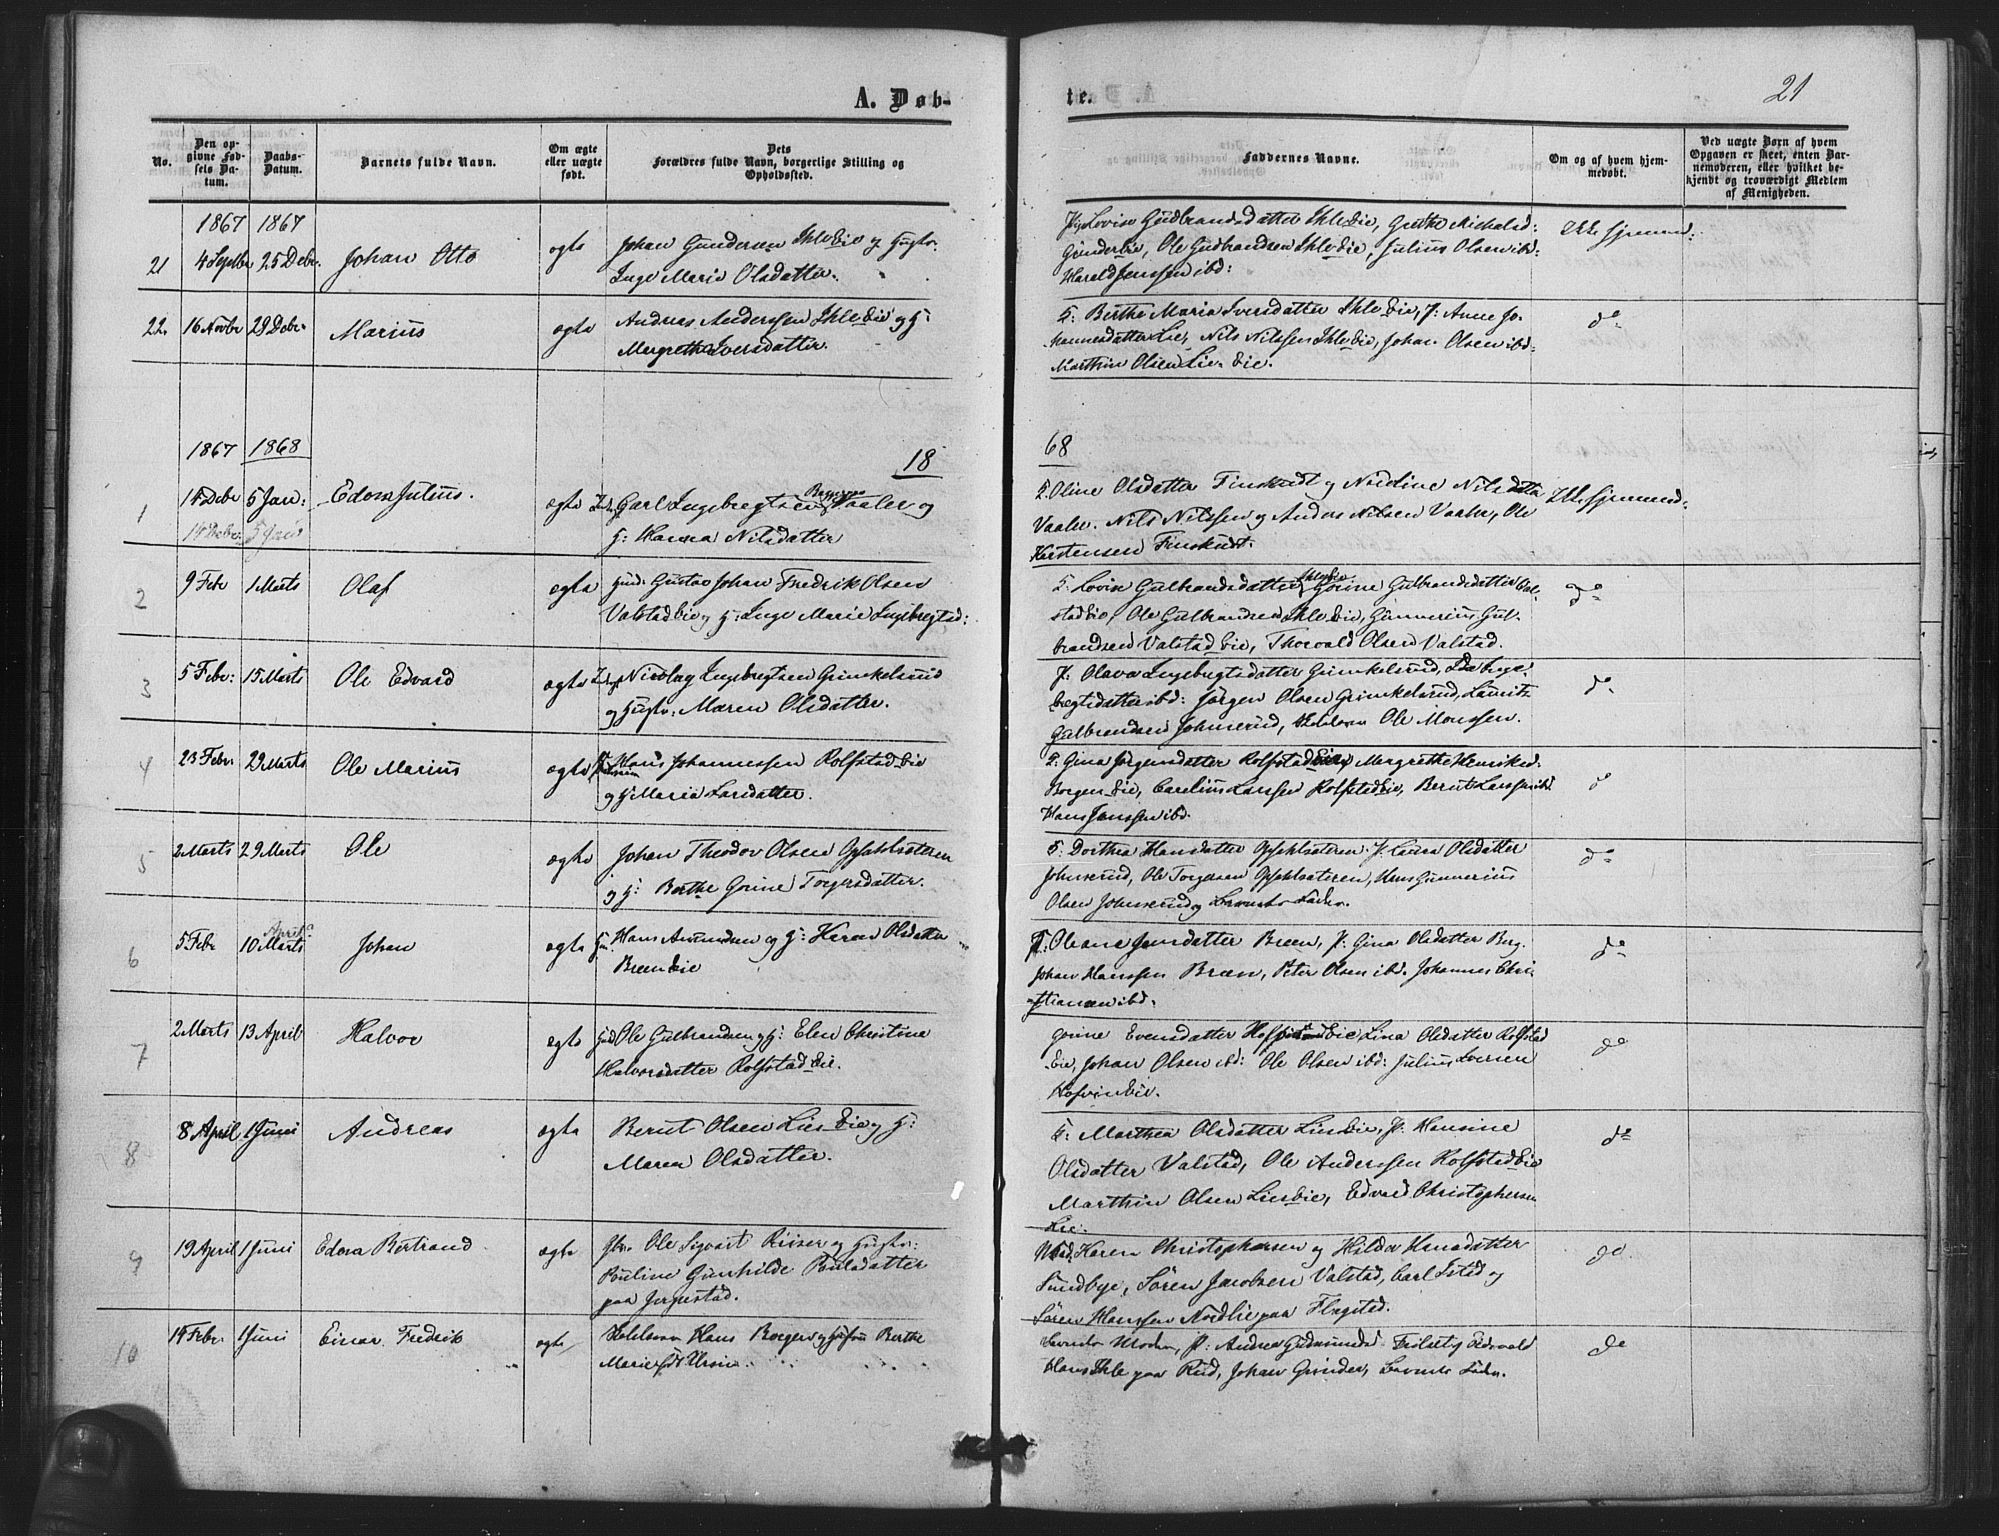 A. Døb-
te.
21
No.
Den opgivne Fødsels Datum.
Daabs-Datum.
Barnets fulde Navn.
Om ægte eller uægte født.
Dets Forældres fulde Navn, borgerlige Stilling og Opholdssted.
Faddernes Navne.
Om og af hvem hjemmedøbt.
Ved uægte Børn af hvem Opgaven er skeet, enten Barnemoderen, eller hvilket bekjendt og troværdigt Medlem af Menigheden.
1867 1867
21 4 Septbr 25 Debr. Johan Otto ægte
Johan Gundersen Ihle Eie og Hustr:
Inge Marie Olsdatter.
Lovise Gudbrandsdatter Ihle Eie, Grethe Michelsd:
Grinder Eie, Ole Gudbrandsen Ihle Eie, Julius Olsen ibd:
Harald Jenssen ibd:
22. 16 Novbr 29 Debr Marius ægte
Andreas Anderssen Ihle Eie og H:
Margrethe Iversdatter.
G: Berthe Maria Iversdatter Ihle Eie, P: Anne Jo-
hannesdatter Lie, Nils Nilssen Ihle Eie, Johan Olsen ibd
Marthin Olsen Lie Eie.
do
1867 1868
18
68
1 14 Debr 5 Jan: Edvor Julius. ægte
14 Debr: 5 Jan:
Carl Ingebregtsen Vaaler og
H: Hanna Nilsdatter
G. Oline Olsdatter Finskudt og Nordline Nilsdatter
Vaaler. Nils Nilssen og Anders Nilsen Vaaler, Ole
Kerstensen Finskudt.
2 9 Febr 1 Marts Olaf ægte
Hud: Gustav Johan Fredrik Olsen
Valstad Eie og H: Inge Marie Ingebregtsd:
G. Lovise Gulbrandsdatter Ihle Eie Gorine Gulbrandsdatter Val-
stad Eie, Ole Gulbrandsen Ihle Eie, Gunnerius Gul-
brandsen Valstad Eie, Thorvald Olsen Valstad.
do
3 5 Febr: 15 Marts Ole Edvard ægte
Nicolay Ingebregtsen Grinkelsrud
og Hustr: Maren Olsdatter.
P: Olava Ingebregtsdatter Grinkelsrud,
bregtsdatter ibd: Jørgen Olsen Grinkelsrud, Lauritz
Gulbrandsen Johnserud, Ole Monssen.
do
4 23 Febr 29 Marts Ole Marius ægte
Hans Johannessen Rolfstad Eie
og H: Maria Larsdatter.
G. Gina Jørgensdatter Rolfstad Eie, Margrethe Henriksd:
Borgen Eie, Carelius Larssen Rolfstad Eie, Bernt Larssen ibd
Hans Jenssen ibd.
do
5 2 Marts 29 Marts Ole ægte
Johan Theodor Olsen
og H: Berthe Gorine Torgersdatter.
G. Dorthea Hansdatter P. Laura Olsdatter
Johnserud, Ole Torgersen Hans Gunnerius
Olsen Johnserud og Barnets Fader.
do
6 5 Febr 10 Marts April Johan ægte
Hans Amundsen og H: Karen Olsdatter
Bræn Eie
G: Oleana Jensdatter Bræn, P: Gina Olsdatter Berg
Johan Hanssen Bræn, Peter Olsen ibd. Johannes Chri-
stiansen ibd.
do
7 2 Marts 13 April Halvor ægte
Hud Ole Gulbrandsen og H: Elen Christine
Halvorsdatter Rolfstad Eie.
Gorine Evensdatter Eie Lina Olsdatter Rolfstad
Eie, Johan Olsen ibd: Ole Olsen ibd: Julius Iversen
Hofvin Eie.
do
8 8 April 1 Juni Andreas ægte
Bernt Olsen Lies Eie og H:
Maren Olsdatter.
G: Marthea Olsdatter Lies Eie, P. Hansine
Olsdatter Valstad, Ole Anderssen Rolfstad Eie
Marthin Olsen Lies Eie, Edvard Christophersen
Lie.
do
9 19 April 1 Juni Edvor Bertrand ægte
Gbr. Ole Sigvart Riiser og Hustr:
Pauline Gunhilde Paulsdatter
paa Jergestad.
Karen Christophersen og Hilda Hansdatter
Sundbye, Søren Jacobsen Valstad, Carl Isted og
Søren Hanssen Nordlie paa Flagsted.
do
10 14 Febr 1 Juni Einar Fredrik ægte
Hans Borgers og Hustru Berthe
Marie
Barnets Moder, P: Andrea Gudmundsd. Eidsvold
Hans Ihle paa Rud, Johan Grinder, Barnets Fader.
do